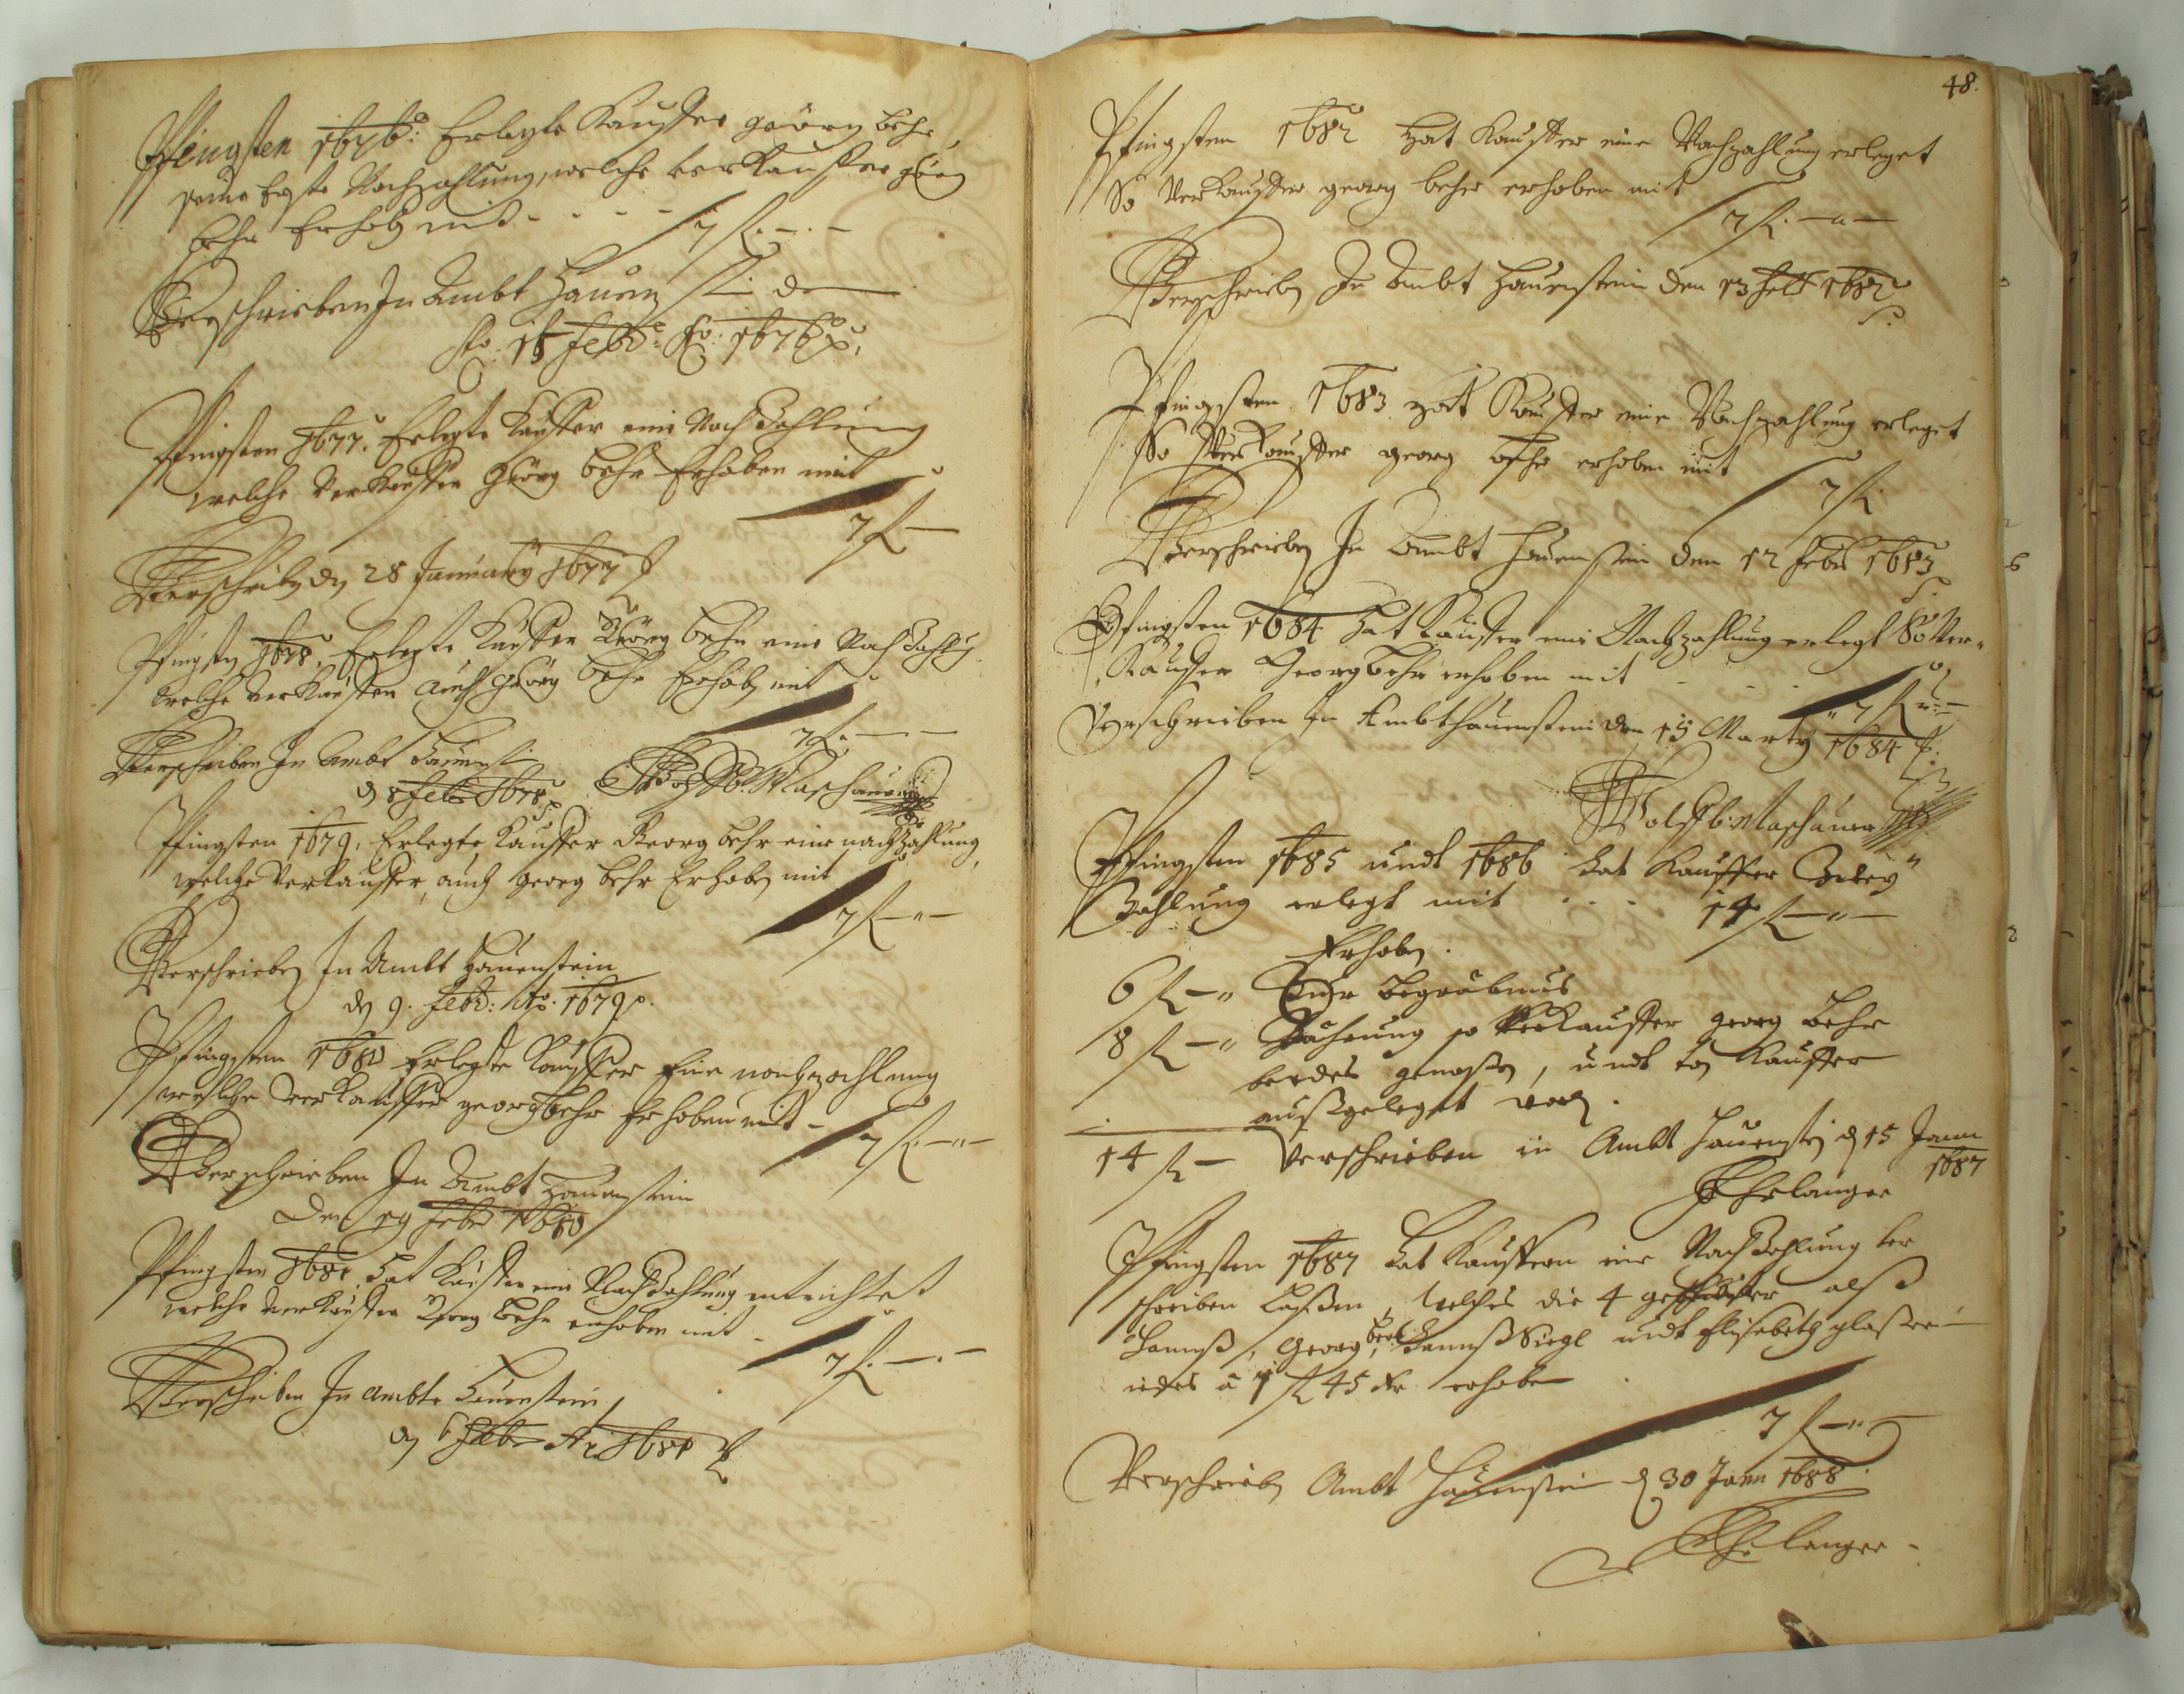 Pfingsten 1676: Erlegte Kauffer Georg Behr
seine Erste Nachzahlung, welche verkauffer Georg
Behr Erhob mit - - - -
7 fl. - . -
Verschrieben In Ambt Hauenst: den
15 Febr: Ao: 1676
Pfingsten 1677. Erlegte Kauffer eine Nachzahlung
welche Verkauffer Georg Behr Erhoben mit
7 fl -
Verschrieb den 28 January 1677
Pfingsten 1678. Erlegte Kauffer Georg Behr eine Nachzahlung
welche Verkauffer auch Georg Behr Erhob mit
7 fl. - -
Verschrieben In Ambt Hauenst:
d 8 Febr 1678
Maschauer
Pfingsten 1679, Erlegte Kauffer Georg Behr eine nachzahlung,
welche Verkauffer, auch Georg Behr Erhoben mit
7 fl - " -
Verschrieben In Ambt Hauenstein
den 9. Febr: Ao. 1679.
Pfingsten 1680 Erlegte Kauffer Eine nachzahlung
welche Verkauffer georg Behr Erhoben mit -
7 fl. - " -
Verschrieben In Ambt Hauenstein
Den 19 Febr 1680
Pfingsten 1681 Hat Kauffer eine Nachzahlung entrichtet
welche Verkauffer Georg Behr erhoben mit -
7 fl. - . -
Verschrieben In Ambte Hauenstein,
den 6 Febr Ao 1681
48.
Pfingsten 1682 Hat Kauffer eine Nachzahlung erleget
So Verkauffer georg Behr erhoben mit
7 fl. - " -
Verschrieben In Ambt Hauenstein den 13 Feb 1682
Pfingsten 1683 Hat Kauffer eine Nachzahlung erleget
So Verkauffer georg Behr erhoben mit
7 fl.
Verschrieben In Ambt Hauenstein den 12 Feb 1683
Pfingsten 1684 Hat Kauffer eine Nachzahlung erlegt So Ver-
Kauffer Georg Behr erhoben mit - - .
" 7 fl " -
Verschrieben In Ambt Hauenstein den 15 Marty 1684
Maschauer
Pfingsten 1685 undt 1686 hat Kauffer Zwey
Zahlung erlegt mit . . . . 14 fl - " -
Erhoben.
6 fl - " Zur Begräbnus
8 fl - " so Verkauffer georg Behr
beedes genossen, undt von Kauffer
außgeleget word.
14 fl - Verschrieben in Ambt Hauenstein d 15 Jann
1687
Pfingsten 1687 hat Kauffern eine Nachzahlung ver
schreiben Lassen, welches die 4 geschwister alß
Hannß, Georg, Behr Hannß Siegl undt Elisabeth
iedes a 1 fl 45 kr erhoben
7 fl - " -
Verschrieben Ambt Hauenstein d 30 Jann 1688.